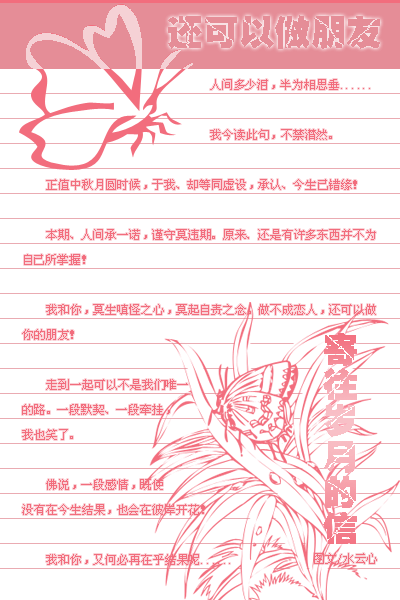 还可以做朋友
人间多少泪，半为相思垂……
我今读此句，不禁潸然。
正值中秋月圆时候，于我、却等同虚设，承认、今生已错缘！
本期、人间承一诺，谨守莫违期。原来、还是有许多东西并不为
自己所掌握！
我和你，莫生嗔怪之心，莫起自责之念。做不成恋人，还可以做
你的朋友！
走到一起可以不是我们唯一
的路。一段默契、一段牵挂
我也笑了。
佛说，一段感情，既使
没有在今生结果，也会在彼岸开花！
我和你，又何必再在乎结果呢……
图文/水云心
寄往岁月的信